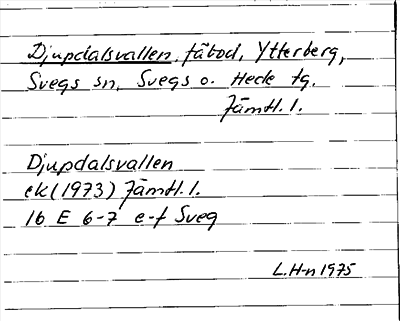 Djupdalsvallen, fäbod, Ytterberg,
Svegs sn, Svegs o. Hede tg.
Jämtl. l.
Djupdalsvallen
ek (1973) Jämtl. l.
16 E 6-7 e-f Sveg
L.H-n 1975